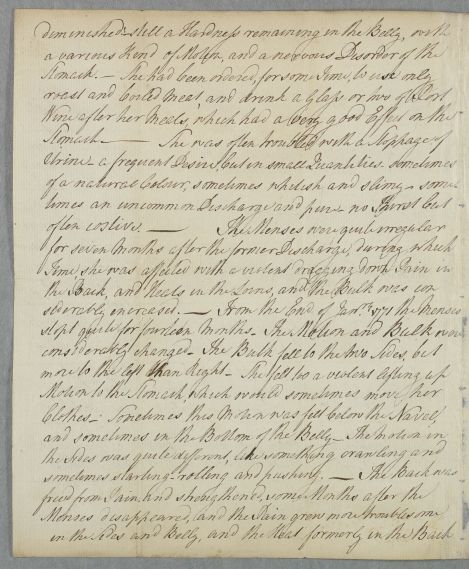 diminished still a Hardness remaining in the Belly, with
a various Kind of Motion, and a nervous Disorder of the
Stomack. — She had been ordered, for some Time, to use only
roast and boiled Meat and drink a Glass or two of Port
Wine after her Meals, which had a very good Effect on the
Stomack. — She was often troubled with a Stoppage of
Urine a frequent Desire, but in small Quantities sometimes
of a natural Colour, sometimes whitish and slimy - some
times an uncommon Discharge and pure - no Thirst but
often costive. — The Menses now quite irregular
for seven Months after the former Discharge, during which
Time she was afflicted with a violent dragging down Pain in
the Back, and Heats in the Loins, and the Bulk was con
siderably increased. — From the End of Jan.ry 1771 the Menses
stopt quite for fourteen Months. The Motion and Bulk were
considerably changed - The Bulk fell to the two Sides, but
more to the left than Right - She felt too a violent lifting up
Motion to the Stomack, which would sometimes move her
Clothes - Sometimes this Motion was felt below the Navel
and sometimes in the Bottom of the Belly - The motion in
the Sides was quite different, like something crawling and
sometimes starting - rolling and pushing. — The Back was
freed from Pain, and streightened, some Months after the
Menses disappeared, and the Pain grew more troublesome
in the Sides and Belly, and the Heat formerly in the Back